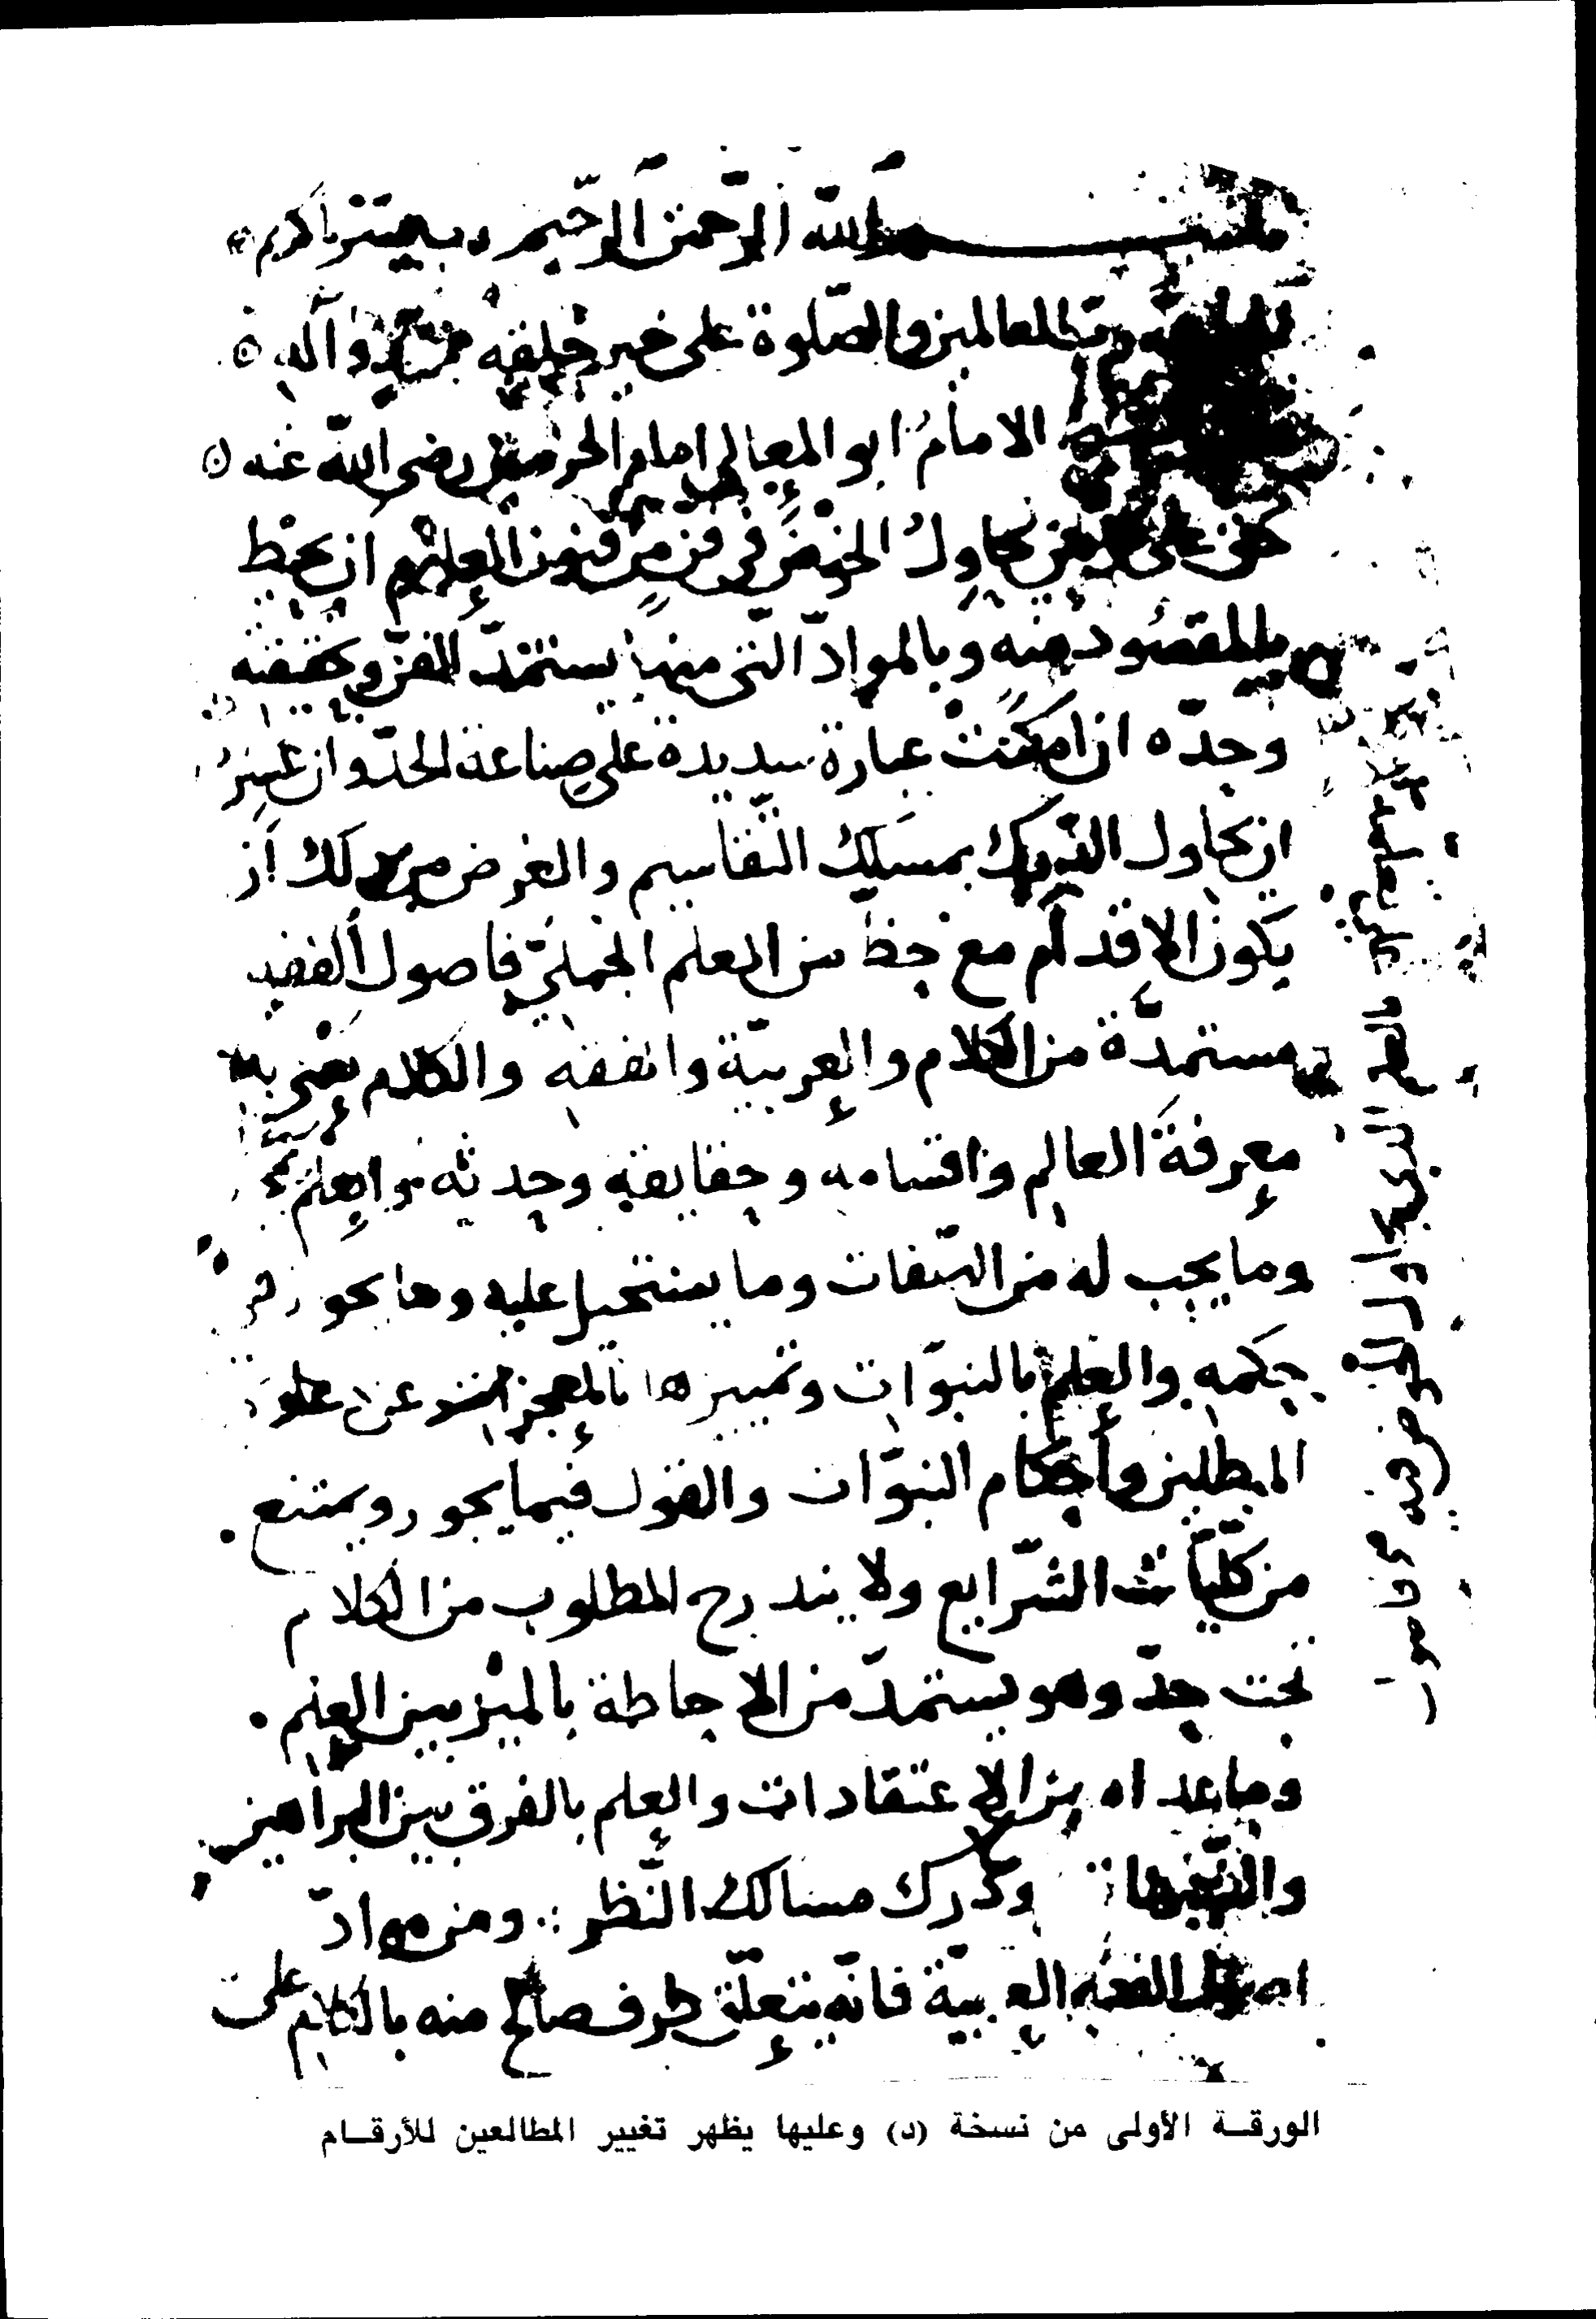 بسم الله الرحمن الرحيم
لله رب العالمين والصلوة على خير خلقه محمد وآله
الامام ابو المعالي امام الحرمين رضي الله عنه
حق على من يحاول الخوض في فن من فنون العلوم ان يحيط
بالمقصود منه وبالمواد التي منها يستمد الفن وبحقيقته
وحده ان امكنت عبارة سديدة على صناعة الحد وان عسر
ان يحاول الدرك بمسلك التقاسيم والغرض من ذلك ان
يكون الاقدام مع حظ من العلم الجملي فاصول الفقه
مستمدة من الكلام والعربية والفقه والكلام نعني به
معرفة العالم واقسامه وحقايقه وحدثه والعلم
وما يجب له من الصفات وما يستحيل عليه وما يجوز في
حكمه والعلم بالنبوات وتميزها بالمعجزات عن
المبطلين واحكام النبوات والقول فيما يجوز ويمتنع
من كليات الشرايع ولا يندرج المطلوب من الكلام
تحت حد وهو يستمد من الاحاطة بالميز بين العلم
وما عداه من الاعتقادات والعلم بالفرق بين البراهين
والشبهات ودرك مسالك النظر ومن مواد
اصول الفقه العربية فانه يتعلق طرف صالح منه بالكلام على
الورقة الأولى من نسخة (د) وعليها يظهر تغيير المطالعين للأرقام